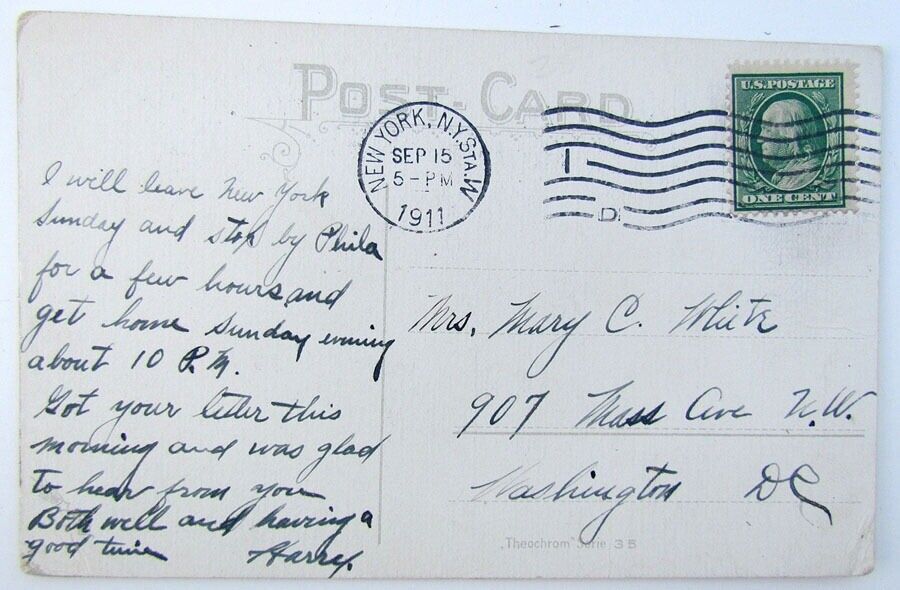 POST-CARD
NEW YORK, N.Y. STA. W
SEP 15
5-PM
1911
1
D
U.S. POSTAGE
ONE CENT
I will leave New York
Sunday and stop by Phila
for a few hours and
get home Sunday evening
about 10 P.M.
Got your letter this
morning and was glad
to hear from you
Both well and having a
good time Harry.
Mrs. Mary C. White
907 Mass Ave N.W.
Washington DC
„Theochrom" Serie 35